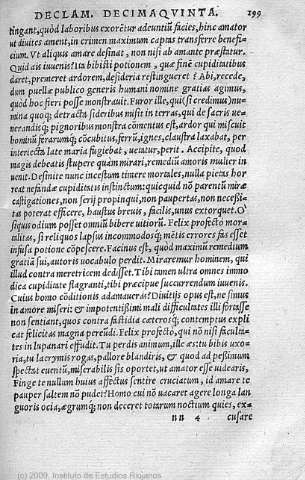 DECLAM. DECIMAQVINTA. 199
tingant, quòd laboribus exoretur adeuntiũ facies, hinc amator
ut diuites ament, in crimen maximum capax transferre benefi-
cium. Vt aliquis amare desinat, non nisi ab amante præstatur.
Quid ais iuuenis? Ita bibisti potionem, quæ finẽ cupiditatibus
daret, premeret ardorem, desideria restingueret? Abi, recede,
dum puellæ publico generis humani nomine gratias agimus,
quòd hoc fieri posse monstrauit. Furor ille, qui (si credimus) nu-
mina quoq; detracta sideribus misit in terras, qui de sacris ue-
nerandisq́; pignoribus monstra commentus est, ardor qui miscuit
hominũ ferarumq́; cõcubitus, ferrũ, ignes, claustra laxabat, per
interiecta late maria fugiebat, uictus est, perijt. Accipite, quod
magis debeatis stupere quàm mirari, remediũ amoris mulier in
uenit. Desinite nunc incestum timere mortales, nulla pietas hor
reat nefandæ cupiditatis instinctum: quicquid nõ parentũ miræ
castigationes, non serij propinqui, non paupertas, non necessi-
tas poterat efficere, haustus breuis, facilis, unus extorquet. O si
quis odium posset omniũ bibere uitiorũ. Felix profectò morta-
litas, si reliquos lapsus incommodosq́; mẽtis errores sic esset
infusa potione cõpescere. Facinus est, quod maximũ remedium
gratia sui, autoris uocabulo perdit. Miraremur hominem, qui
illud contra meretricem dedisset. Tibi tamen ultra omnes immo
dica cupiditate flagranti, tibi præcipue succurrendum iuuenis.
Cuius homo cõditionis adamaueris? Diuitijs opus est, ne simus
in amore miseri & impotentissimi mali difficultates illi forasse
non sentiant, quos contra fastidia cæterosq́; contemptus explicat
felicitas magna pereũdi. Felix profectò, qui nõ nisi facultates
in lupanari effudit. Tu perdis animum, ille æstu bibis uxo-
ria, tu lacrymis rogas, pallore blandiris, & quod ad pessimum
spectat euentũ, miserabilis sis oportet, ut amator esse uidearis.
Finge te nullam huius affectus sentire cruciatum, id amare te
pauper saltem nõ pudet? Homo cui nõ uacaret agere longa lan
guoris ocia, ægrumq́; non deceret totarum noctium quies, ex-
nn 4 cusare
(c) 2009, Instituto de Estudios Riojanos